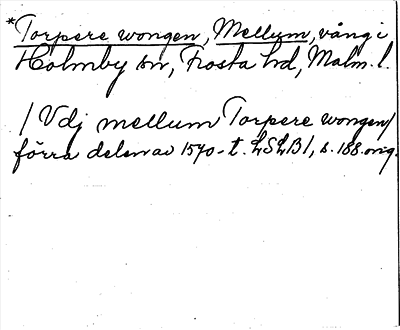 *Torpere wongen, Mellum, vång i
Holmby sn, Frosta hd, Malm. l.
/ Vdj mellum Torpere wongen/
förra delen av 1570-t. LSLB 1, s. 188. orig.